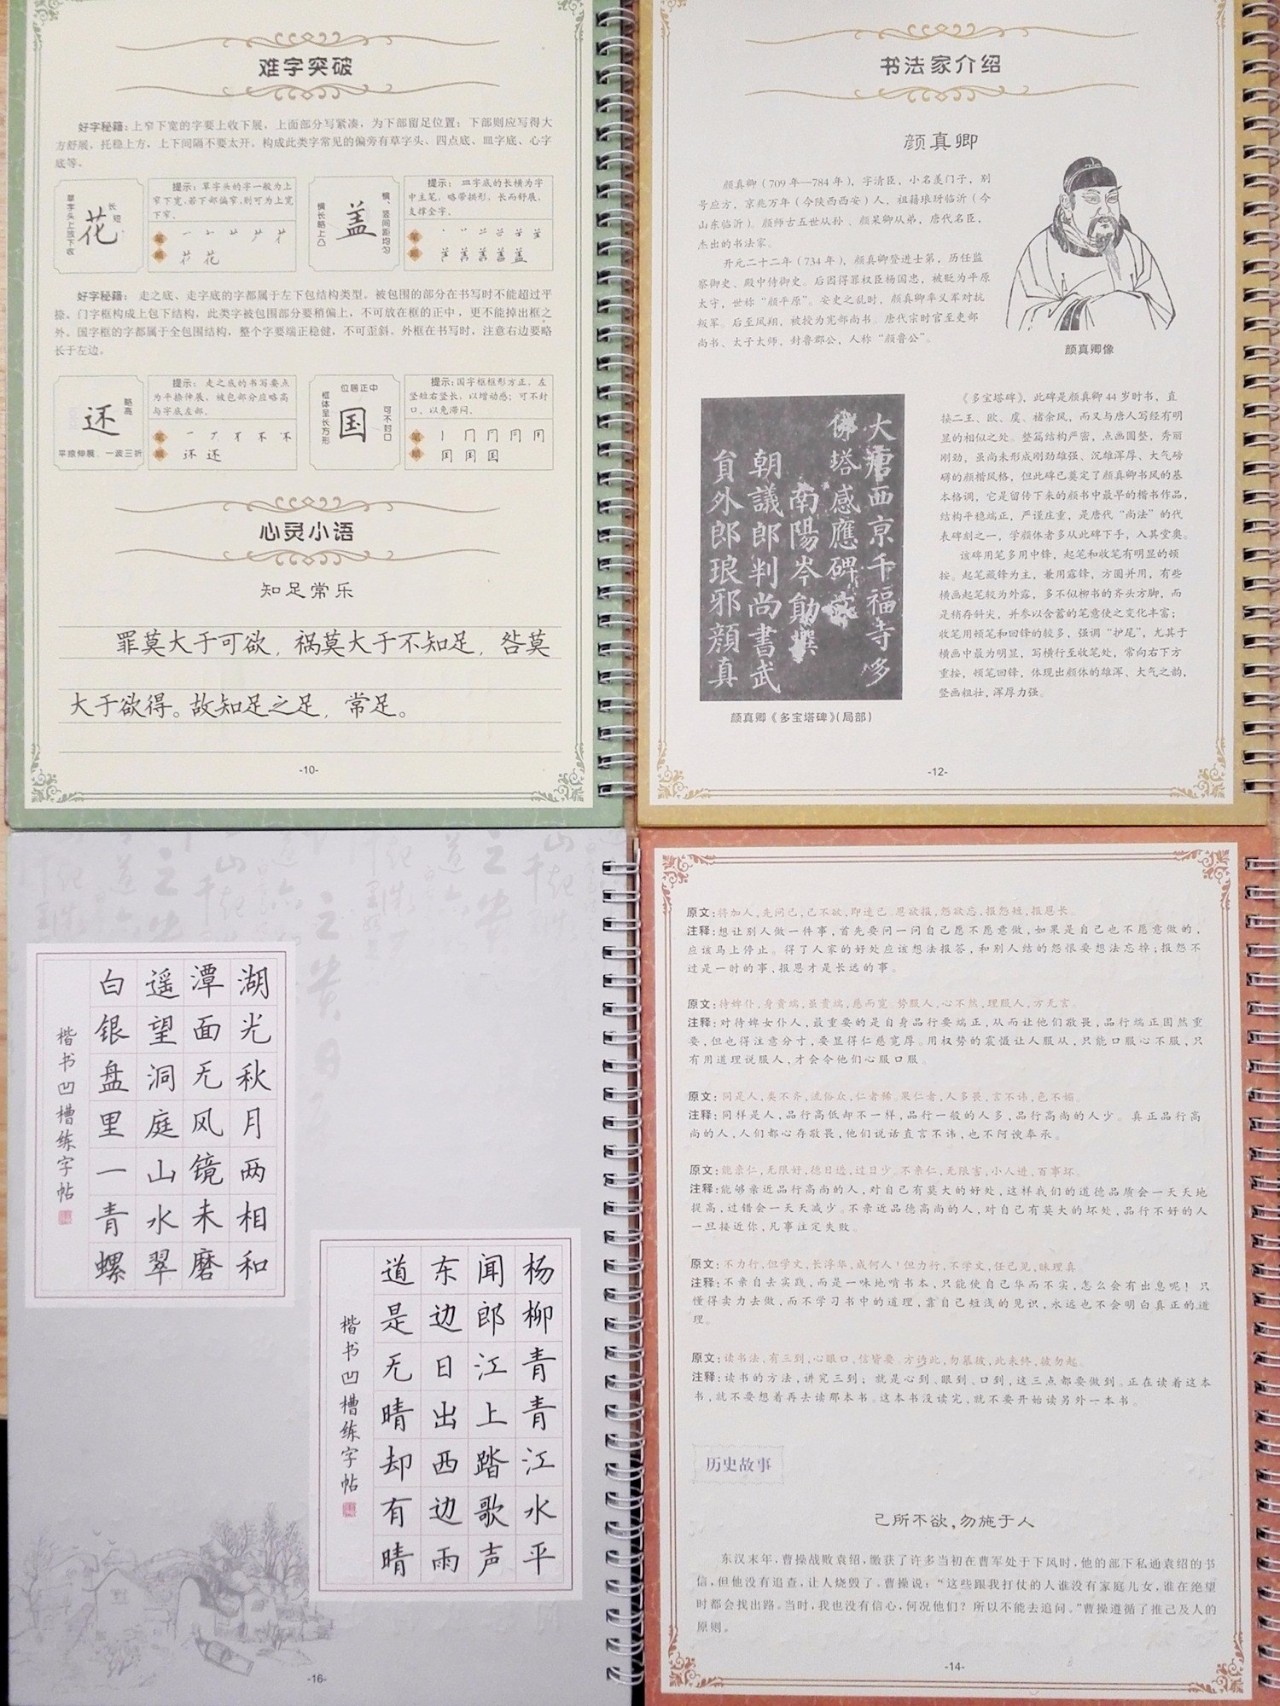 难字突破
好字秘籍：上窄下宽的字要上收下展，上面部分写紧凑，为下部留足位置；下部则应写得大
方舒展，托稳上方，上下间隔不要太开。构成此类字常见的偏旁有草字头、四点底、皿字底、心字
底等。
草字头上放下收
花
长短
提示：草字头的字一般为上
窄下宽，若下部偏窄，则可为上宽
下窄。
笔顺
横长略上凸
盖
横、竖间距均匀
提示：皿字底的长横为字
中主笔，略带拱形，长而舒展，
支撑全字。
笔顺
好字秘籍：走之底、走字底的字都属于左下包结构类型，被包围的部分在书写时不能超过平
捺。门字框构成上包下结构，此类字被包围部分要稍偏上，不可放在框的正中，更不能掉出框之
外。国字框的字都属于全包围结构，整个字要端正稳健，不可歪斜。外框在书写时，注意右边要略
长于左边。
还
略高
平捺伸展、一波三折
提示：走之底的书写要点
为平捺伸展，被包部分应略高
与字底左部。
笔顺
位居正中
框体呈长方形
国
可不封口
提示：国字框框形方正，左
竖短右竖长，以增动感；可不封
口，以免滞闷。
笔顺
心灵小语
知足常乐
罪莫大于可欲，祸莫大于不知足，咎莫
大于欲得。故知足之足，常足。
-10-
书法家介绍
颜真卿
颜真卿（709年—784年），字清臣，小名羡门子，别
号应方，京兆万年（今陕西西安）人，祖籍琅玡临沂（今
山东临沂）。颜师古五世从孙、颜杲卿从弟，唐代名臣，
杰出的书法家。
开元二十二年（734年），颜真卿登进士第，历任监
察御史、殿中侍御史。后因得罪权臣杨国忠，被贬为平原
太守，世称“颜平原”。安史之乱时，颜真卿率义军对抗
叛军。后至凤翔，被授为宪部尚书。唐代宗时官至吏部
尚书、太子太师，封鲁郡公，人称“颜鲁公”。
颜真卿像
大唐西京千福寺多
佛塔感應碑
南陽岑勛撰
朝議郎判尚書武
負外郎琅邪顏真
颜真卿《多宝塔碑》（局部）
《多宝塔碑》，此碑是颜真卿44岁时书，直
接二王、欧、虞、褚余风，而又与唐人写经有明
显的相似之处。整篇结构严密，点画圆整，秀丽
刚劲，虽尚未形成刚劲雄强、沉雄浑厚、大气磅
礴的颜楷风格，但此碑已奠定了颜真卿书风的基
本格调，它是留传下来的颜书中最早的楷书作品，
结构平稳端正，严谨庄重，是唐代“尚法”的代
表碑刻之一，学颜体者多从此碑下手，入其堂奥。
该碑用笔多用中锋，起笔和收笔有明显的顿
按。起笔藏锋为主，兼用露锋，方圆并用，有些
横画起笔较为外露，多不似柳书的齐头方脚，而
是稍存斜尖，并参以含蓄的笔意使之变化丰富；
收笔用顿笔和回锋的较多，强调“护尾”，尤其于
横画中最为明显，写横行至收笔处，常向右下方
重按，顿笔回锋，体现出颜体的雄浑、大气之韵，
竖画粗壮，浑厚力强。
-12-
湖光秋月两相和
潭面无风镜未磨
遥望洞庭山水翠
白银盘里一青螺
楷书凹槽练字帖
杨柳青青江水平
闻郎江上踏歌声
东边日出西边雨
道是无晴却有晴
楷书凹槽练字帖
-16-
原文：将加人，先问己，己不欲，即速已。恩欲报，怨欲忘，报怨短，报恩长。
注释：想让别人做一件事，首先要问一问自己愿不愿意做，如果是自己也不愿意做的，
应该马上停止。得了人家的好处应该想法报答，和别人结的怨恨要想法忘掉；报怨不
过是一时的事，报恩才是长远的事。
原文：待婢仆，身贵端，虽贵端，慈而宽。势服人，心不然，理服人，方无言。
注释：对待婢女仆人，最重要的是自身品行要端正，从而让他们敬畏，品行端正固然重
要，但也得注意分寸，要显得仁慈宽厚。用权势的震慑让人服从，只能口服心不服，只
有用道理说服人，才会令他们心服口服。
原文：同是人，类不齐，流俗众，仁者稀。果仁者，人多畏，言不讳，色不媚。
注释：同样是人，品行高低却不一样，品行一般的人多，品行高尚的人少。真正品行高
尚的人，人们都心存敬畏，他们说话直言不讳，也不阿谀奉承。
原文：能亲仁，无限好，德日进，过日少。不亲仁，无限害，小人进，百事坏。
注释：能够亲近品行高尚的人，对自己有莫大的好处，这样我们的道德品质会一天天地
提高，过错会一天天减少。不亲近品德高尚的人，对自己有莫大的坏处，品行不好的人
一旦接近你，凡事注定失败。
原文：不力行，但学文，长浮华，成何人！但力行，不学文，任己见，昧理真。
注释：不亲自去实践，而是一味地啃书本，只能使自己华而不实，怎么会有出息呢！只
懂得卖力去做，而不学习书中的道理，靠自己短浅的见识，永远也不会明白真正的道
理。
原文：读书法，有三到，心眼口，信皆要。方读此，勿慕彼，此未终，彼勿起。
注释：读书的方法，讲究三到；就是心到、眼到、口到，这三点都要做到。正在读着这本
书，就不要想着再去读那本书。这本书没读完，就不要开始读另外一本书。
历史故事
己所不欲，勿施于人
东汉末年，曹操战败袁绍，缴获了许多当初在曹军处于下风时，他的部下私通袁绍的书
信，但他没有追查，让人烧毁了。曹操说：“这些跟我打仗的人谁没有家庭儿女，谁在绝望
时都会找出路。当时，我也没有信心，何况他们？所以不能去追问。”曹操遵循了推己及人的
原则。
-14-